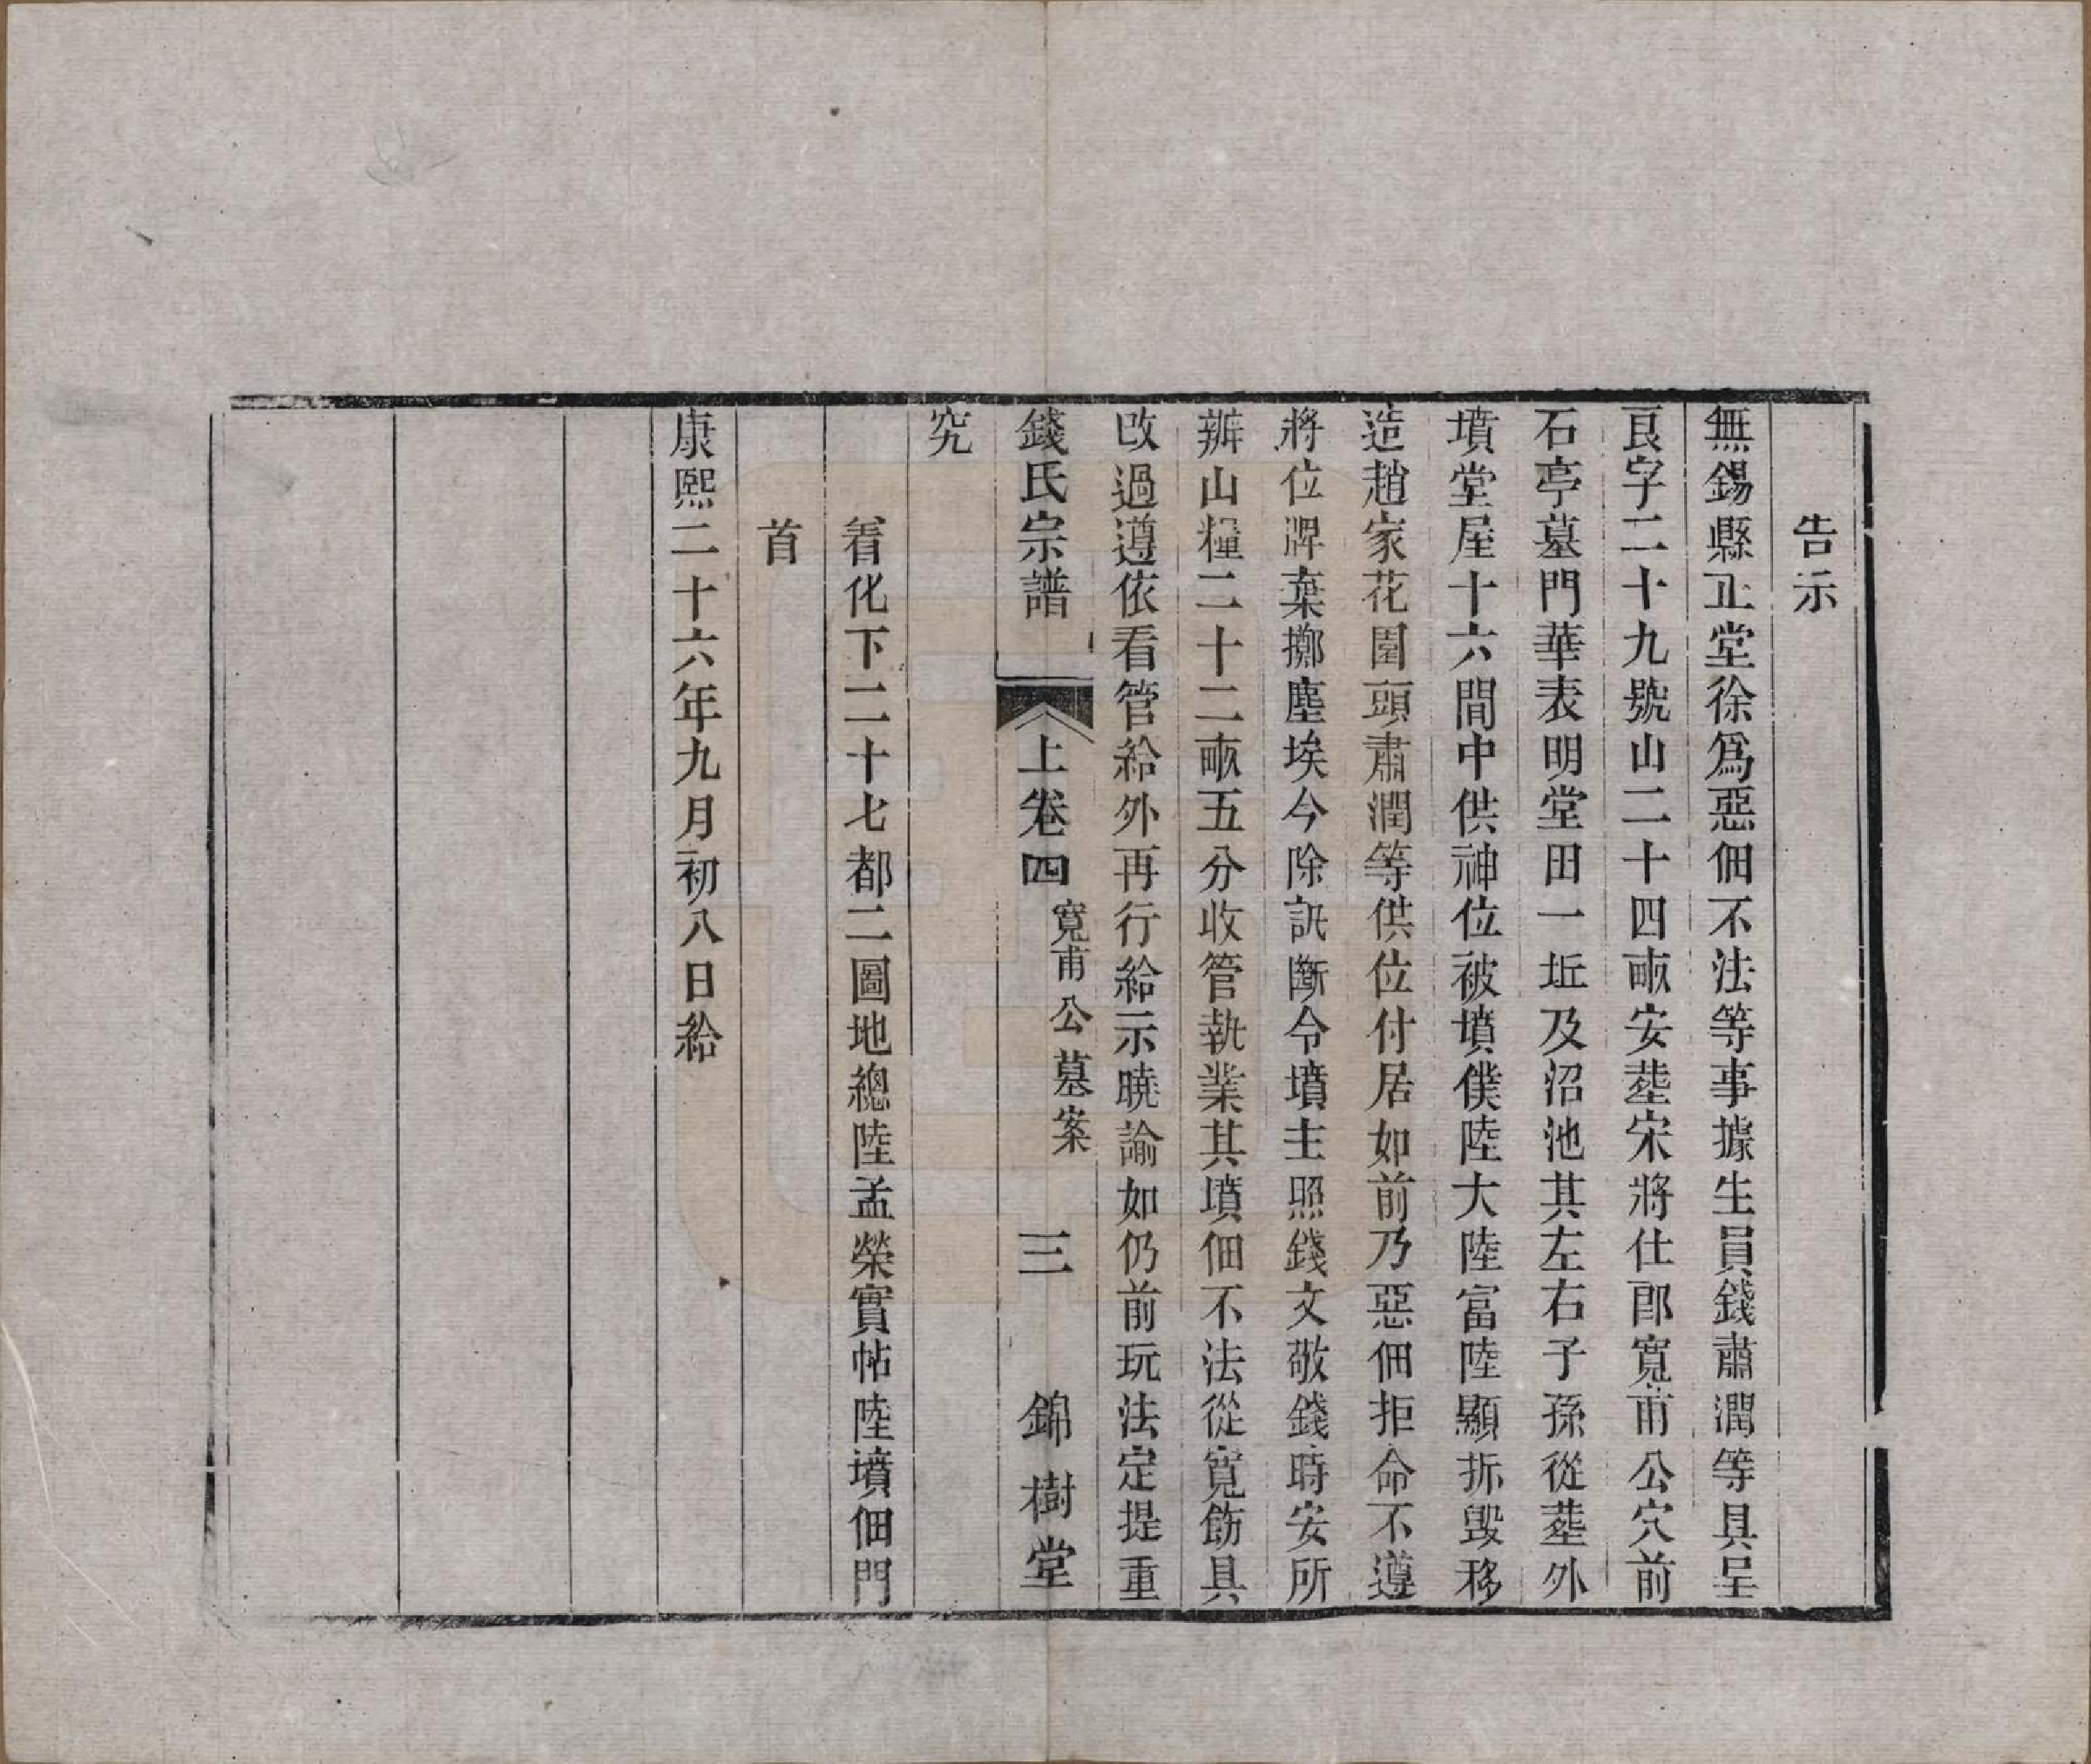 告示
無錫縣正堂徐爲惡佃不法等事據生員錢肅潤等具呈
良字二十九號山二十四畝安塟宋將仕郎寬甫公穴前
石亭墓門華表明堂田一坵及沼池其左右子孫從塟外
墳堂屋十六間中供神位被墳僕陸大陸富陸顯拆毁移
造趙家花園頭肅潤等供位付居如前乃惡佃拒命不遵
將位牌棄擲塵埃今除訊斷令墳主照錢文敬錢時安所
辦山糧二十二畝五分收管執業其墳佃不法從寬飭具
改過遵依看管給外再行給示曉諭如仍前玩法定提重
錢氏宗譜 上卷四 寬甫公墓案 三 錦樹堂
究
着化下二十七都二圖地總陸孟榮實帖陸墳佃門
首
康熙二十六年九月初八日給